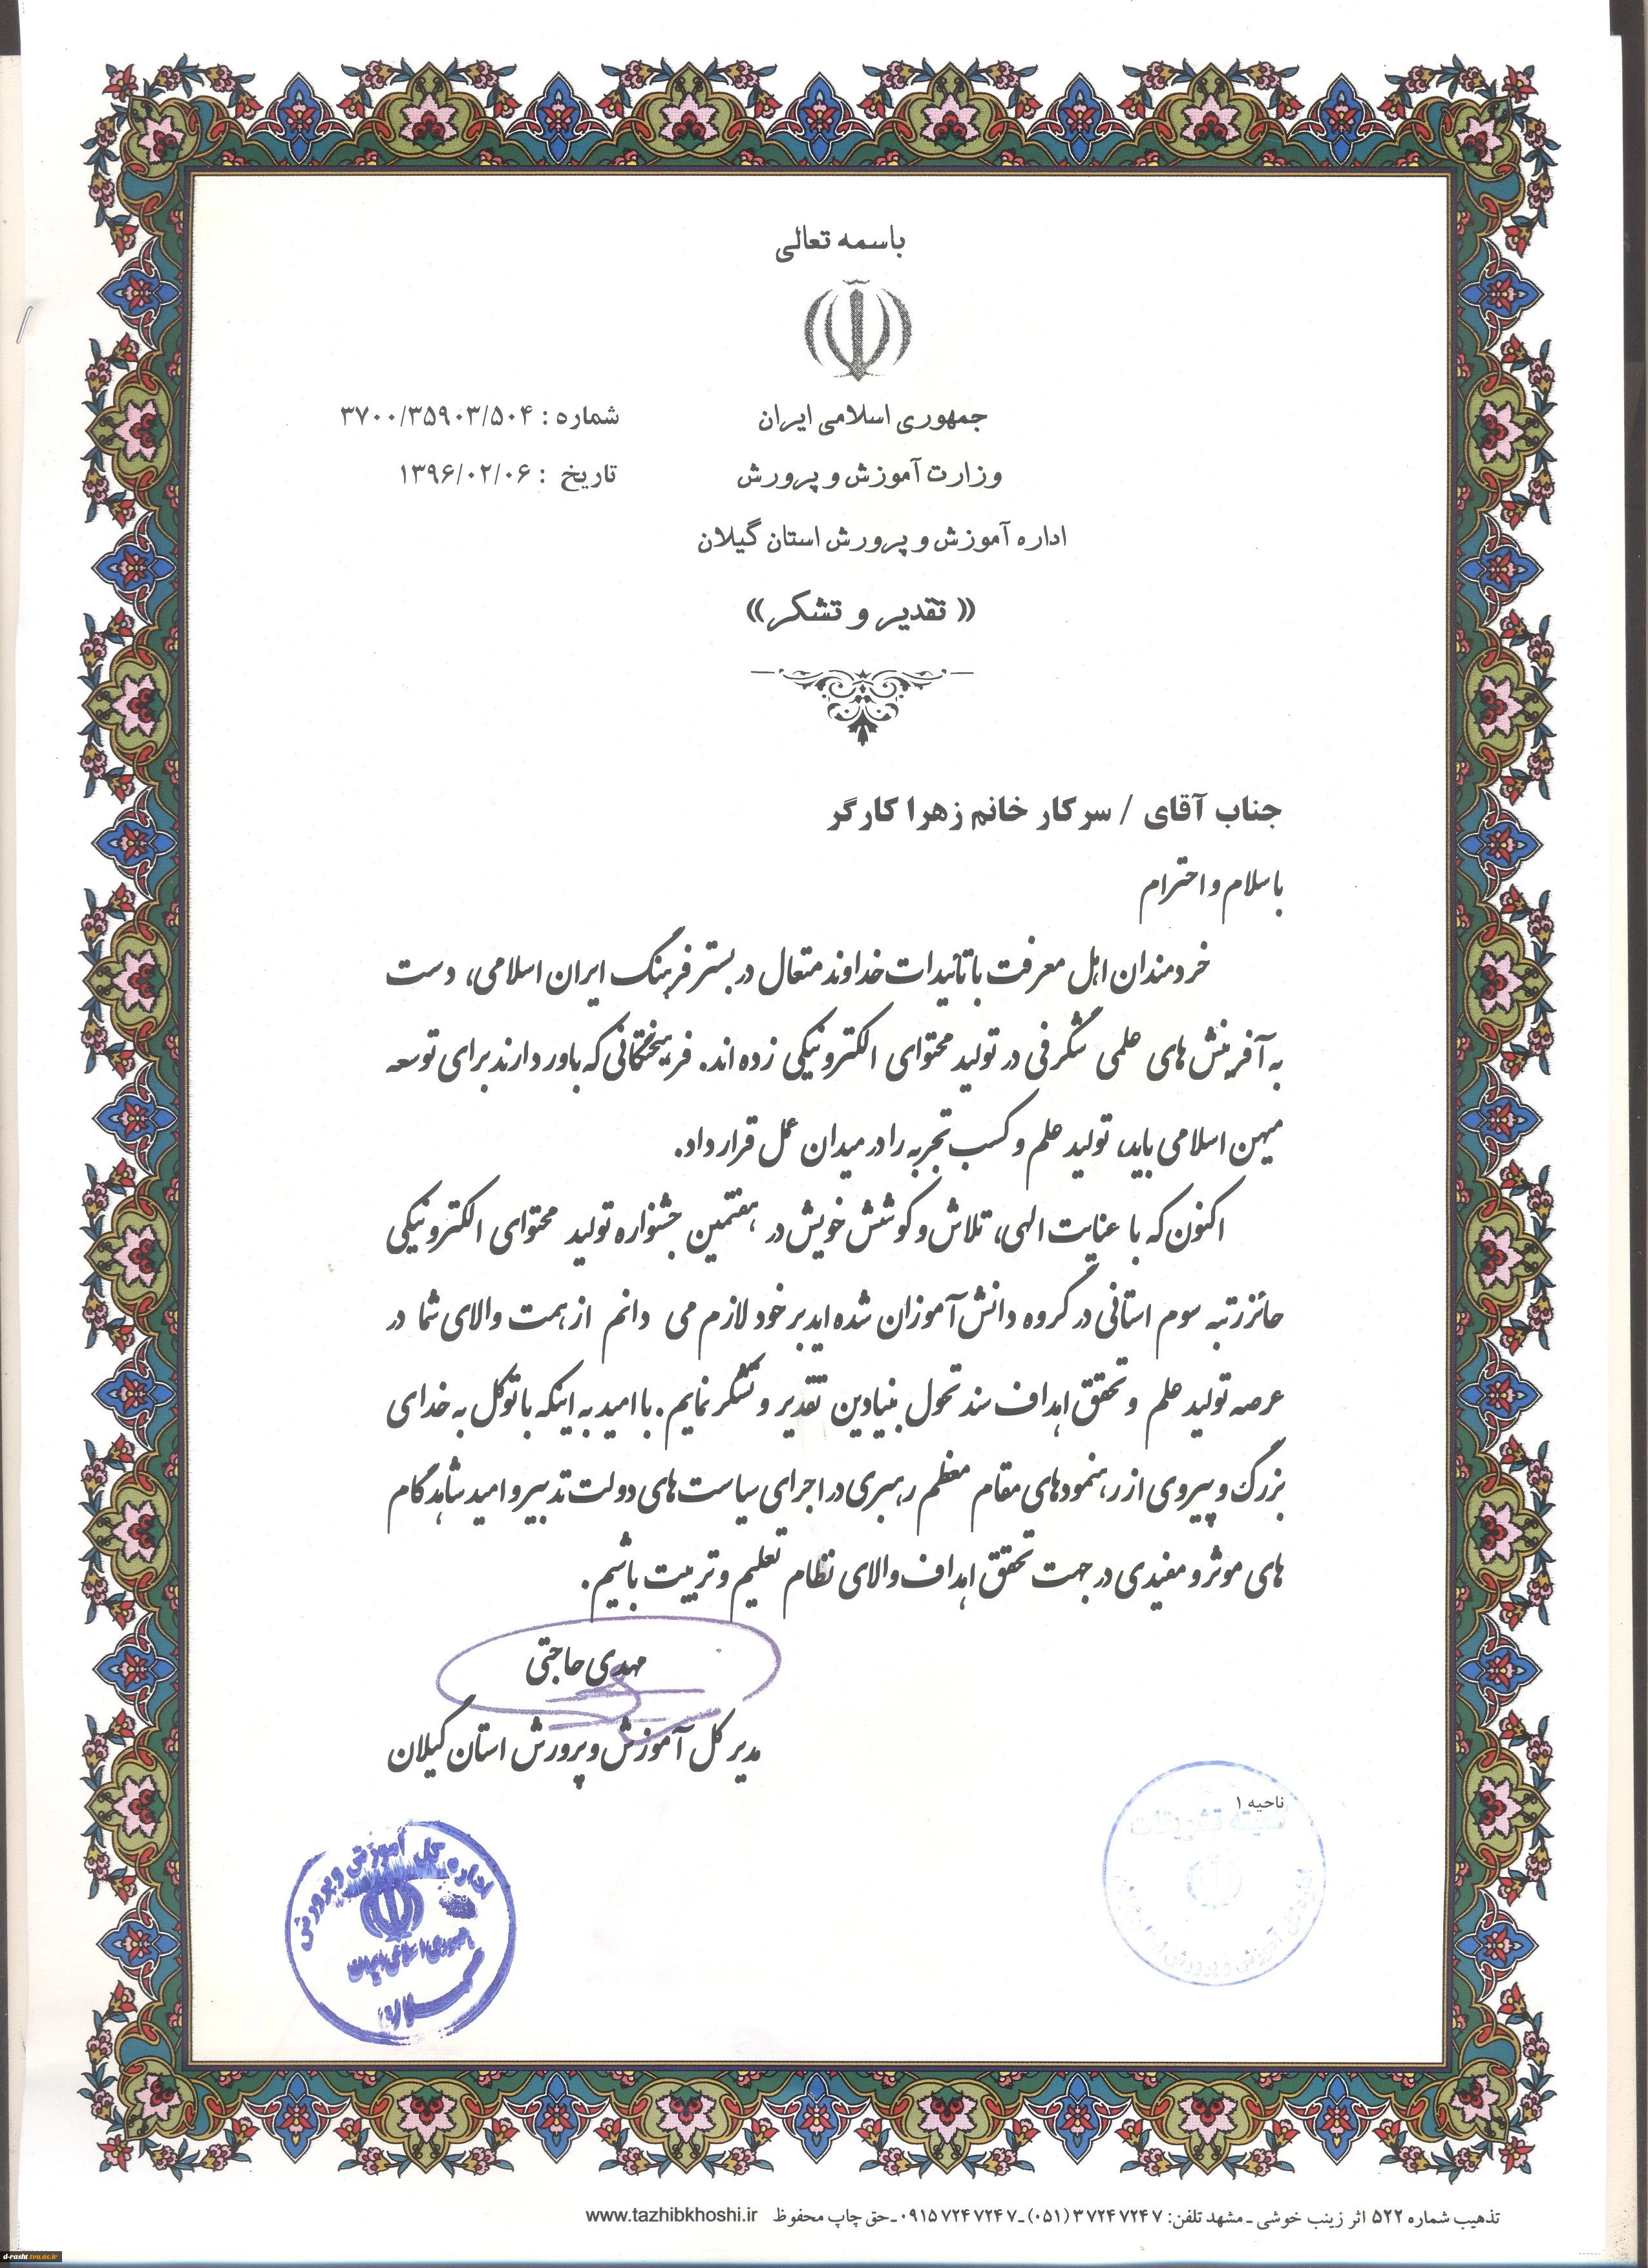 باسمه تعالی
جمهوری اسلامی ایران
شماره : ۳۷۰۰/۳۵۹۰۳/۵۰۴
وزارت آموزش و پرورش
تاریخ : ۱۳۹۶/۰۲/۰۶
اداره آموزش و پرورش استان گیلان
« تقدیر و تشکر»
جناب آقای / سرکار خانم زهرا کارگر
با سلام و احترام
خردمندان اهل معرفت با تائیدات خداوند متعال در بستر فرهنگ ایران اسلامی، دست
به آفرینش های علمی شگرفی در تولید محتوای الکترونیکی زده اند. فرهیختگانی که باور دارند برای توسعه
میهن اسلامی باید، تولید علم و کسب تجربه را در میدان عمل قرار داد.
اکنون که با عنایت الهی، تلاش و کوشش خویش در هفتمین جشنواره تولید محتوای الکترونیکی
حائز رتبه سوم استانی در گروه دانش آموزان شده اید بر خود لازم می دانم از همت والای شما در
عرصه تولید علم و تحقق اهداف سند تحول بنیادین تقدیر و تشکر نمایم. با امید به اینکه با توکل به خدای
بزرگ و پیروی از رهنمودهای مقام معظم رهبری در اجرای سیاست های دولت تدبیر و امید شاهد گام
های موثر و مفیدی در جهت تحقق اهداف والای نظام تعلیم و تربیت باشیم.
مهدی حاجتی
مدیر کل آموزش و پرورش استان گیلان
ناحیه ۱
اداره کل آموزش و پرورش
جمهوری اسلامی ایران
تذهیب شماره ۵۲۲ اثر زینب خوشی ـ مشهد تلفن: ۳۷۲۴۷۲۴۷ (۰۵۱) ـ ۰۹۱۵۷۲۴۷۲۴۷ ـ حق چاپ محفوظ www.tazhibkhoshi.ir
d-rasht.tvu.ac.ir